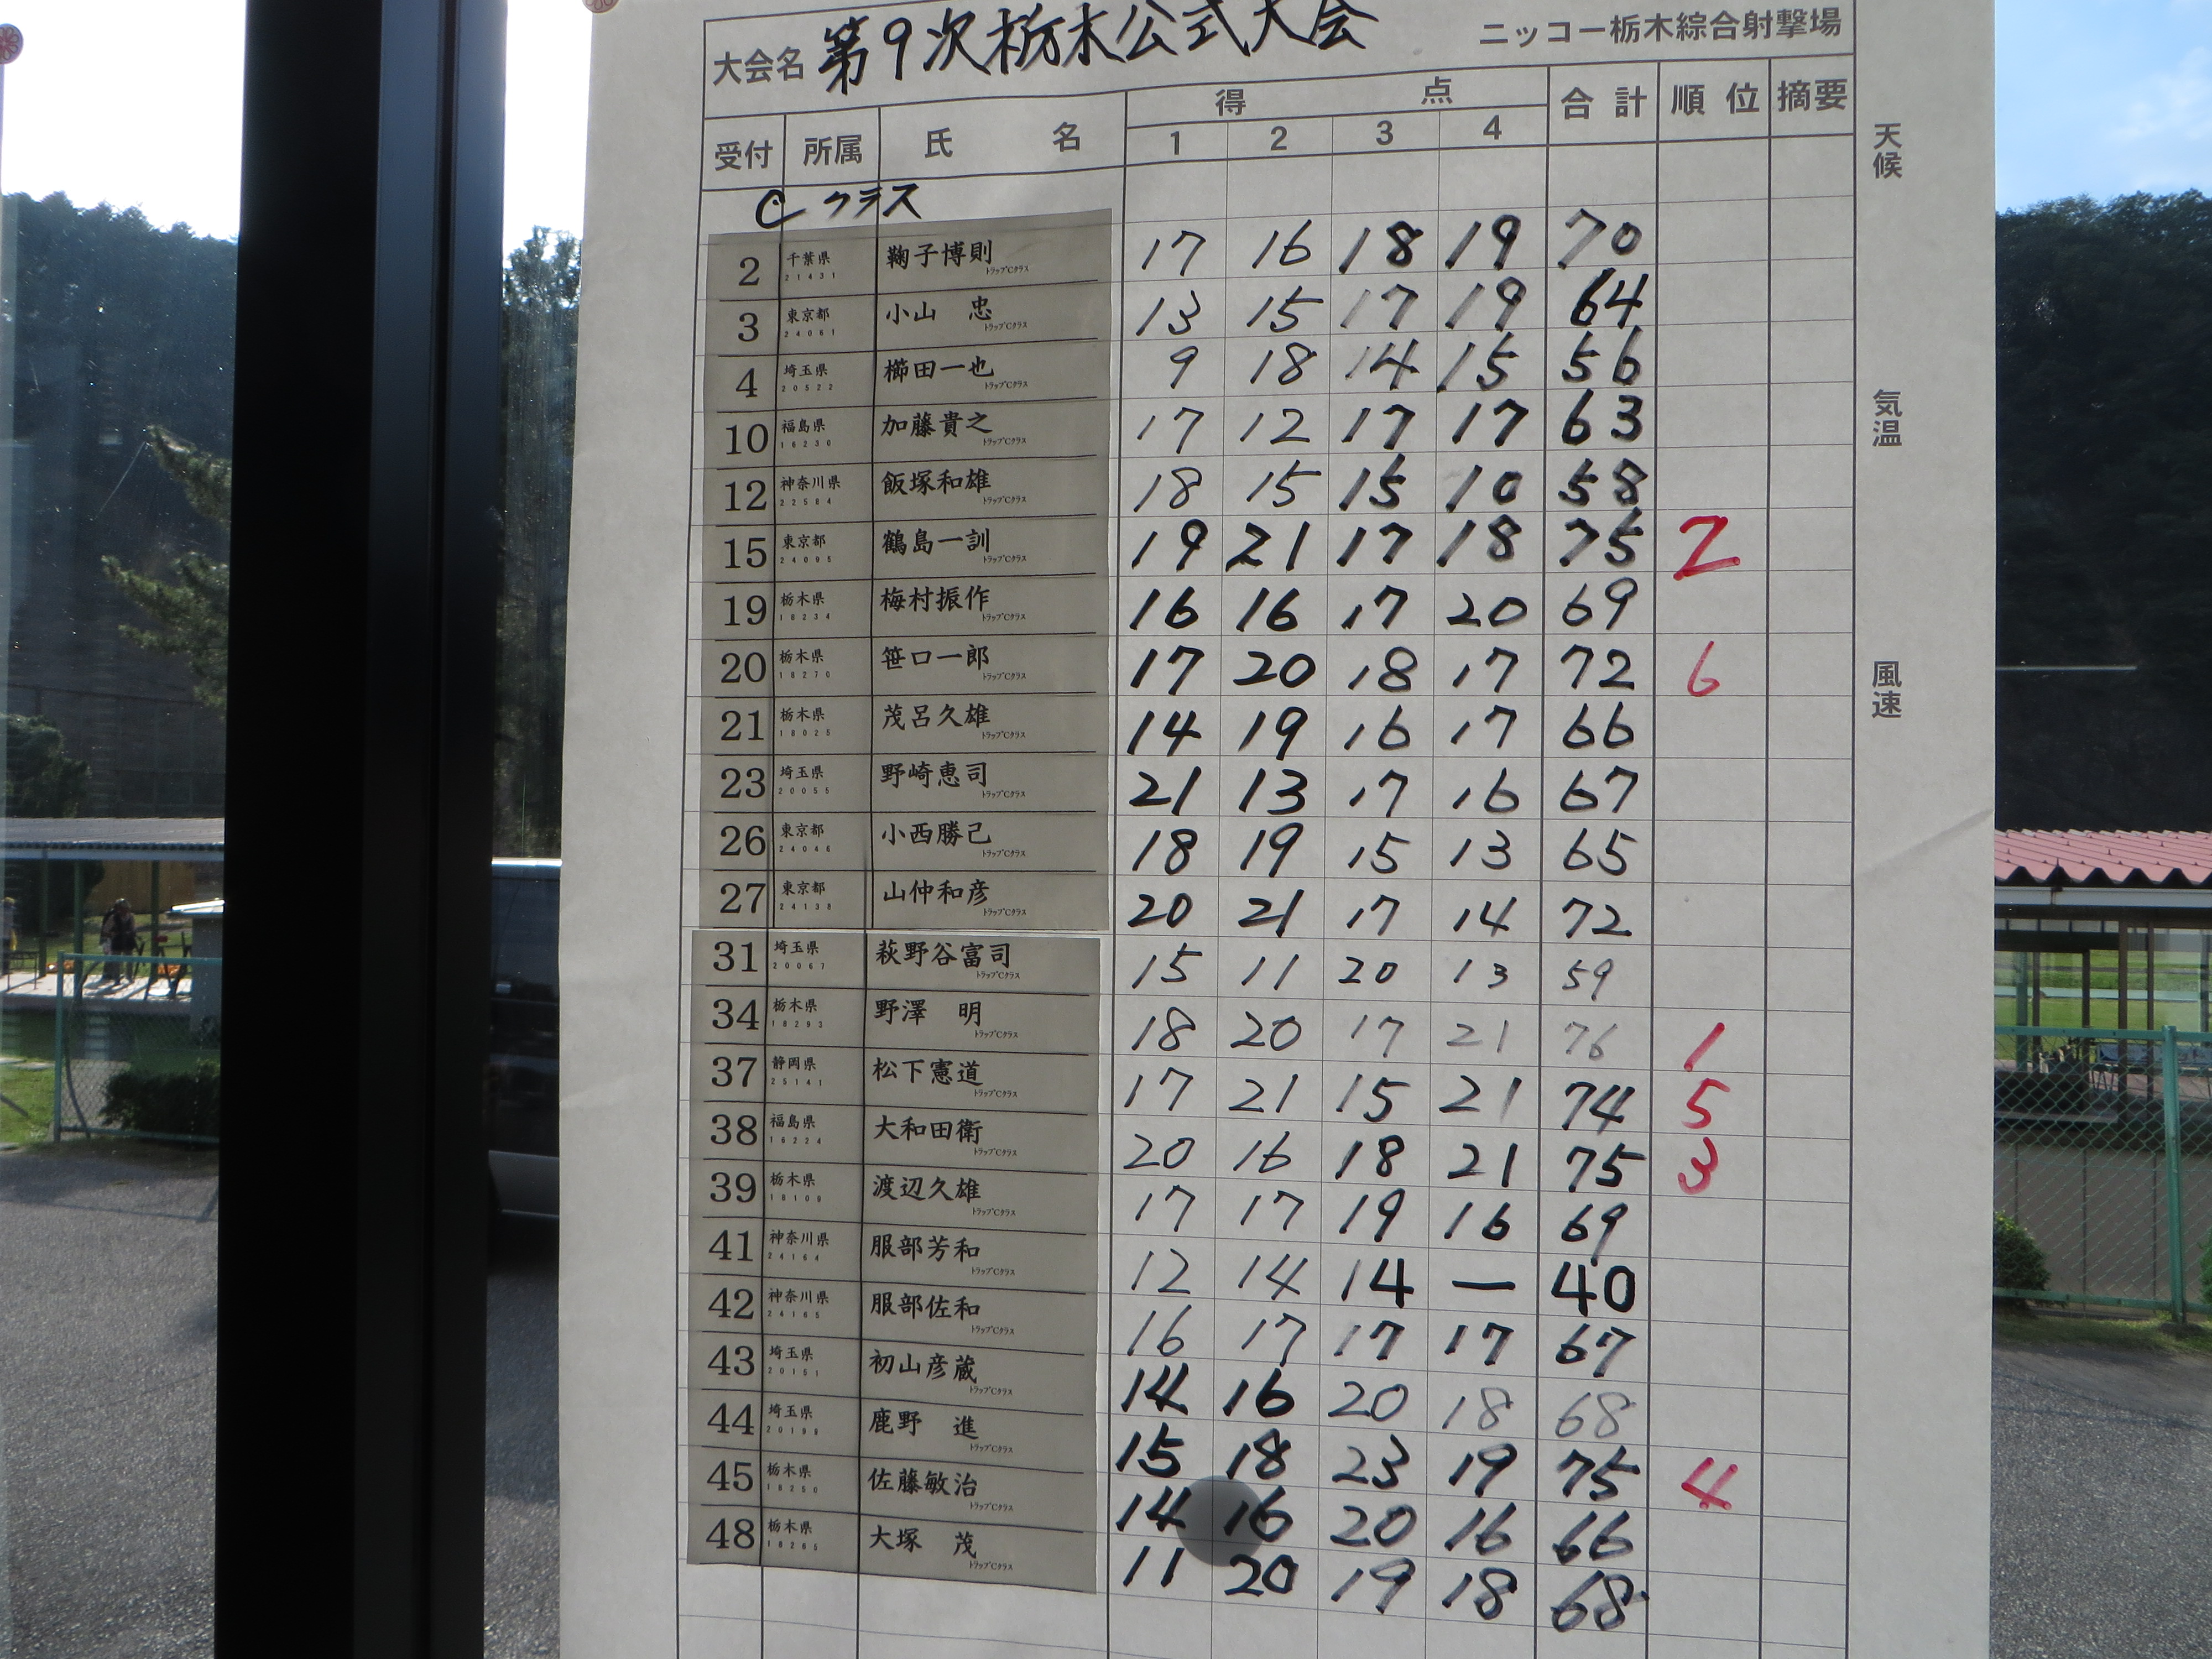 大会名 第9次栃木公式大会 ニッコー栃木綜合射撃場
受付 所属 氏名 得点 1 2 3 4 合計 順位 摘要
Cクラス
2 千葉県 21431 鞠子博則 トラップCクラス 17 16 18 19 70
3 東京都 24061 小山 忠 トラップCクラス 13 15 17 19 64
4 埼玉県 20522 櫛田一也 トラップCクラス 9 18 14 15 56
10 福島県 16230 加藤貴之 トラップCクラス 17 12 17 17 63
12 神奈川県 22584 飯塚和雄 トラップCクラス 18 15 15 10 58
15 東京都 24095 鶴島一訓 トラップCクラス 19 21 17 18 75 2
19 栃木県 18234 梅村振作 トラップCクラス 16 16 17 20 69
20 栃木県 18270 笹口一郎 トラップCクラス 17 20 18 17 72 6
21 栃木県 18025 茂呂久雄 トラップCクラス 14 19 16 17 66
23 埼玉県 20055 野崎恵司 トラップCクラス 21 13 17 16 67
26 東京都 24046 小西勝己 トラップCクラス 18 19 15 13 65
27 東京都 24138 山仲和彦 トラップCクラス 20 21 17 14 72
31 埼玉県 20067 萩野谷富司 トラップCクラス 15 11 20 13 59
34 栃木県 18293 野澤 明 トラップCクラス 18 20 17 21 76 1
37 静岡県 25141 松下憲道 トラップCクラス 17 21 15 21 74 5
38 福島県 16224 大和田衛 トラップCクラス 20 16 18 21 75 3
39 栃木県 18108 渡辺久雄 トラップCクラス 17 17 19 16 69
41 神奈川県 24164 服部芳和 トラップCクラス 12 14 14 — 40
42 神奈川県 24165 服部佐和 トラップCクラス 16 17 17 17 67
43 埼玉県 20151 初山彦蔵 トラップCクラス 14 16 20 18 68
44 埼玉県 20198 鹿野 進 トラップCクラス 15 18 23 19 75 4
45 栃木県 18250 佐藤敏治 トラップCクラス 14 16 20 16 66
48 栃木県 18265 大塚 茂 トラップCクラス 11 20 19 18 68
天候
気温
風速